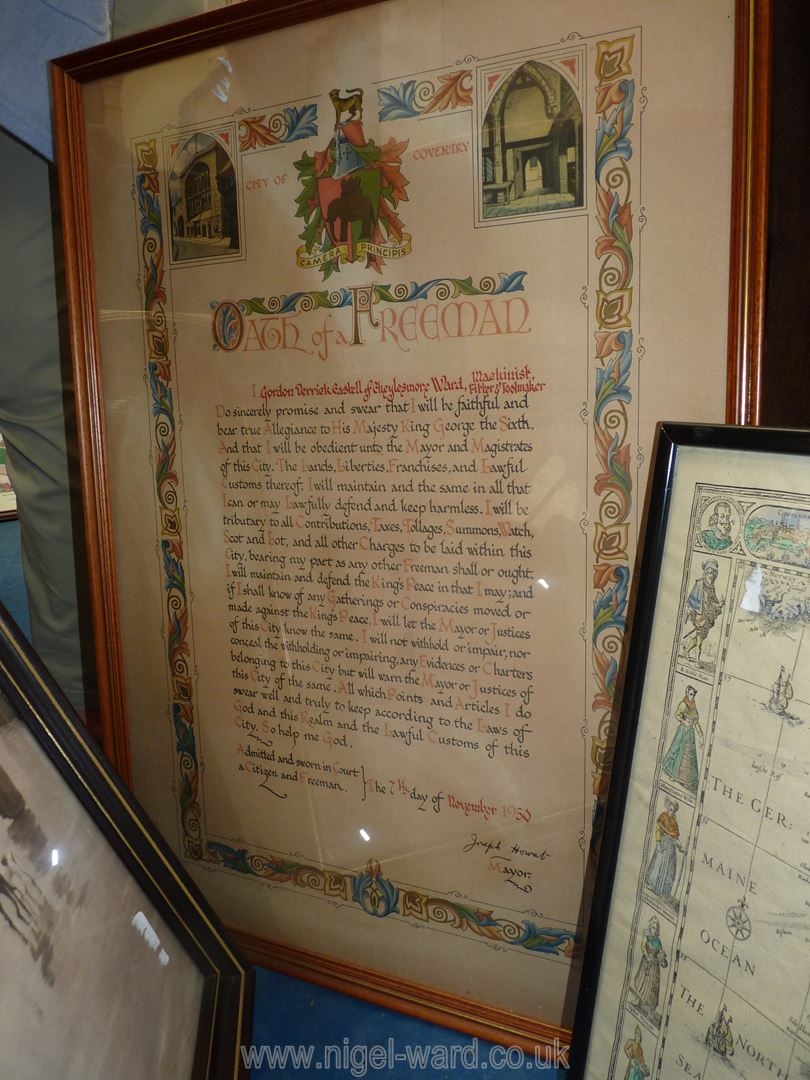 CITY OF COVENTRY
CAMERA PRINCIPIS
OATH of a FREEMAN
I Gordon Derrick Castell of Cheylesmore Ward, Machinist, Fitter & Toolmaker
Do sincerely promise and swear that I will be faithful and
bear true Allegiance to His Majesty King George the Sixth.
And that I will be obedient unto the Mayor and Magistrates
of this City. The Lands, Liberties, Franchises, and Lawful
Customs thereof, I will maintain and the same in all that
I can or may Lawfully defend and keep harmless. I will be
tributary to all Contributions, Taxes, Tollages, Summons, Watch,
Scot and Lot, and all other Charges to be laid within this
City, bearing my part as any other Freeman shall or ought.
I will maintain and defend the King's Peace in that I may; and
if I shall know of any Gatherings or Conspiracies moved or
made against the King's Peace, I will let the Mayor or Justices
of this City know the same. I will not withhold or impair, nor
conceal the withholding or impairing, any Evidences or Charters
belonging to this City but will warn the Mayor or Justices of
this City of the same. All which Points and Articles I do
swear well and truly to keep according to the Laws of
God and this Realm and the Lawful Customs of this
City. So help me God.
Admitted and sworn in Court
a Citizen and Freeman.
The 7th day of November 1950
Joseph Howat
Mayor
THE GER:
MAINE
OCEAN
THE NORTH
SEA
www.nigel-ward.co.uk